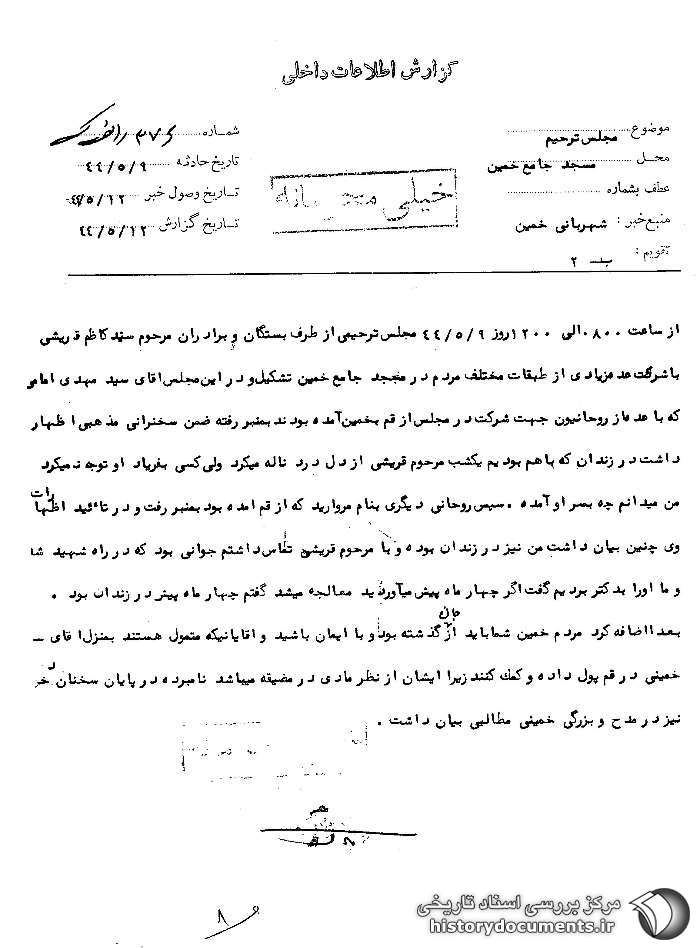 گزارش اطلاعات داخلی
موضوع مجلس ترحیم
محل مسجد جامع خمین
عطف بشماره
منبع خبر : شهربانی خمین
تقویم : ب ـ ۲
شماره ۳۷۶
تاریخ حادثه ۴۴/۵/۹
تاریخ وصول خبر ۴۴/۵/۱۲
تاریخ گزارش ۴۴/۵/۱۲
خیلی محرمانه
از ساعت ۰۸۰۰ الی ۱۲۰۰ روز ۴۴/۵/۹ مجلس ترحیمی از طرف بستگان و برادران مرحوم سید کاظم قریشی
با شرکت عده زیادی از طبقات مختلف مردم در مسجد جامع خمین تشکیل و در این مجلس اقای سید مهدی امامی
که با عده از روحانیون جهت شرکت در مجلس از قم بخمین آمده بودند بمنبر رفته ضمن سخنرانی مذهبی اظهار
داشت در زندان که باهم بودیم یکشب مرحوم قریشی از دل درد ناله میکرد ولی کسی بفریاد او توجه نمیکرد
من میدانم چه بسر او آمده . سپس روحانی دیگری بنام مروارید که از قم امده بود بمنبر رفت و در تائید اظهارات
وی چنین بیان داشت من نیز در زندان بوده و با مرحوم قریشی تماس داشتم جوانی بود که در راه شهید شد
و ما اورا بدکتر بردیم گفت اگر چهار ماه پیش میآوردید معالجه میشد گفتم چهار ماه پیش در زندان بود .
بعدا اضافه کرد مردم خمین شما باید از جان گذشته بود و با ایمان باشید و اقایانیکه متمول هستند بمنزل اقای ـ
خمینی در قم پول داده و کمك کنند زیرا ایشان از نظر مادی در مضیقه میباشد نامبرده در پایان سخنان خود
نیز در مدح و بزرگی خمینی مطالبی بیان داشت .
۸
مرکز بررسی اسناد تاریخی
historydocuments.ir